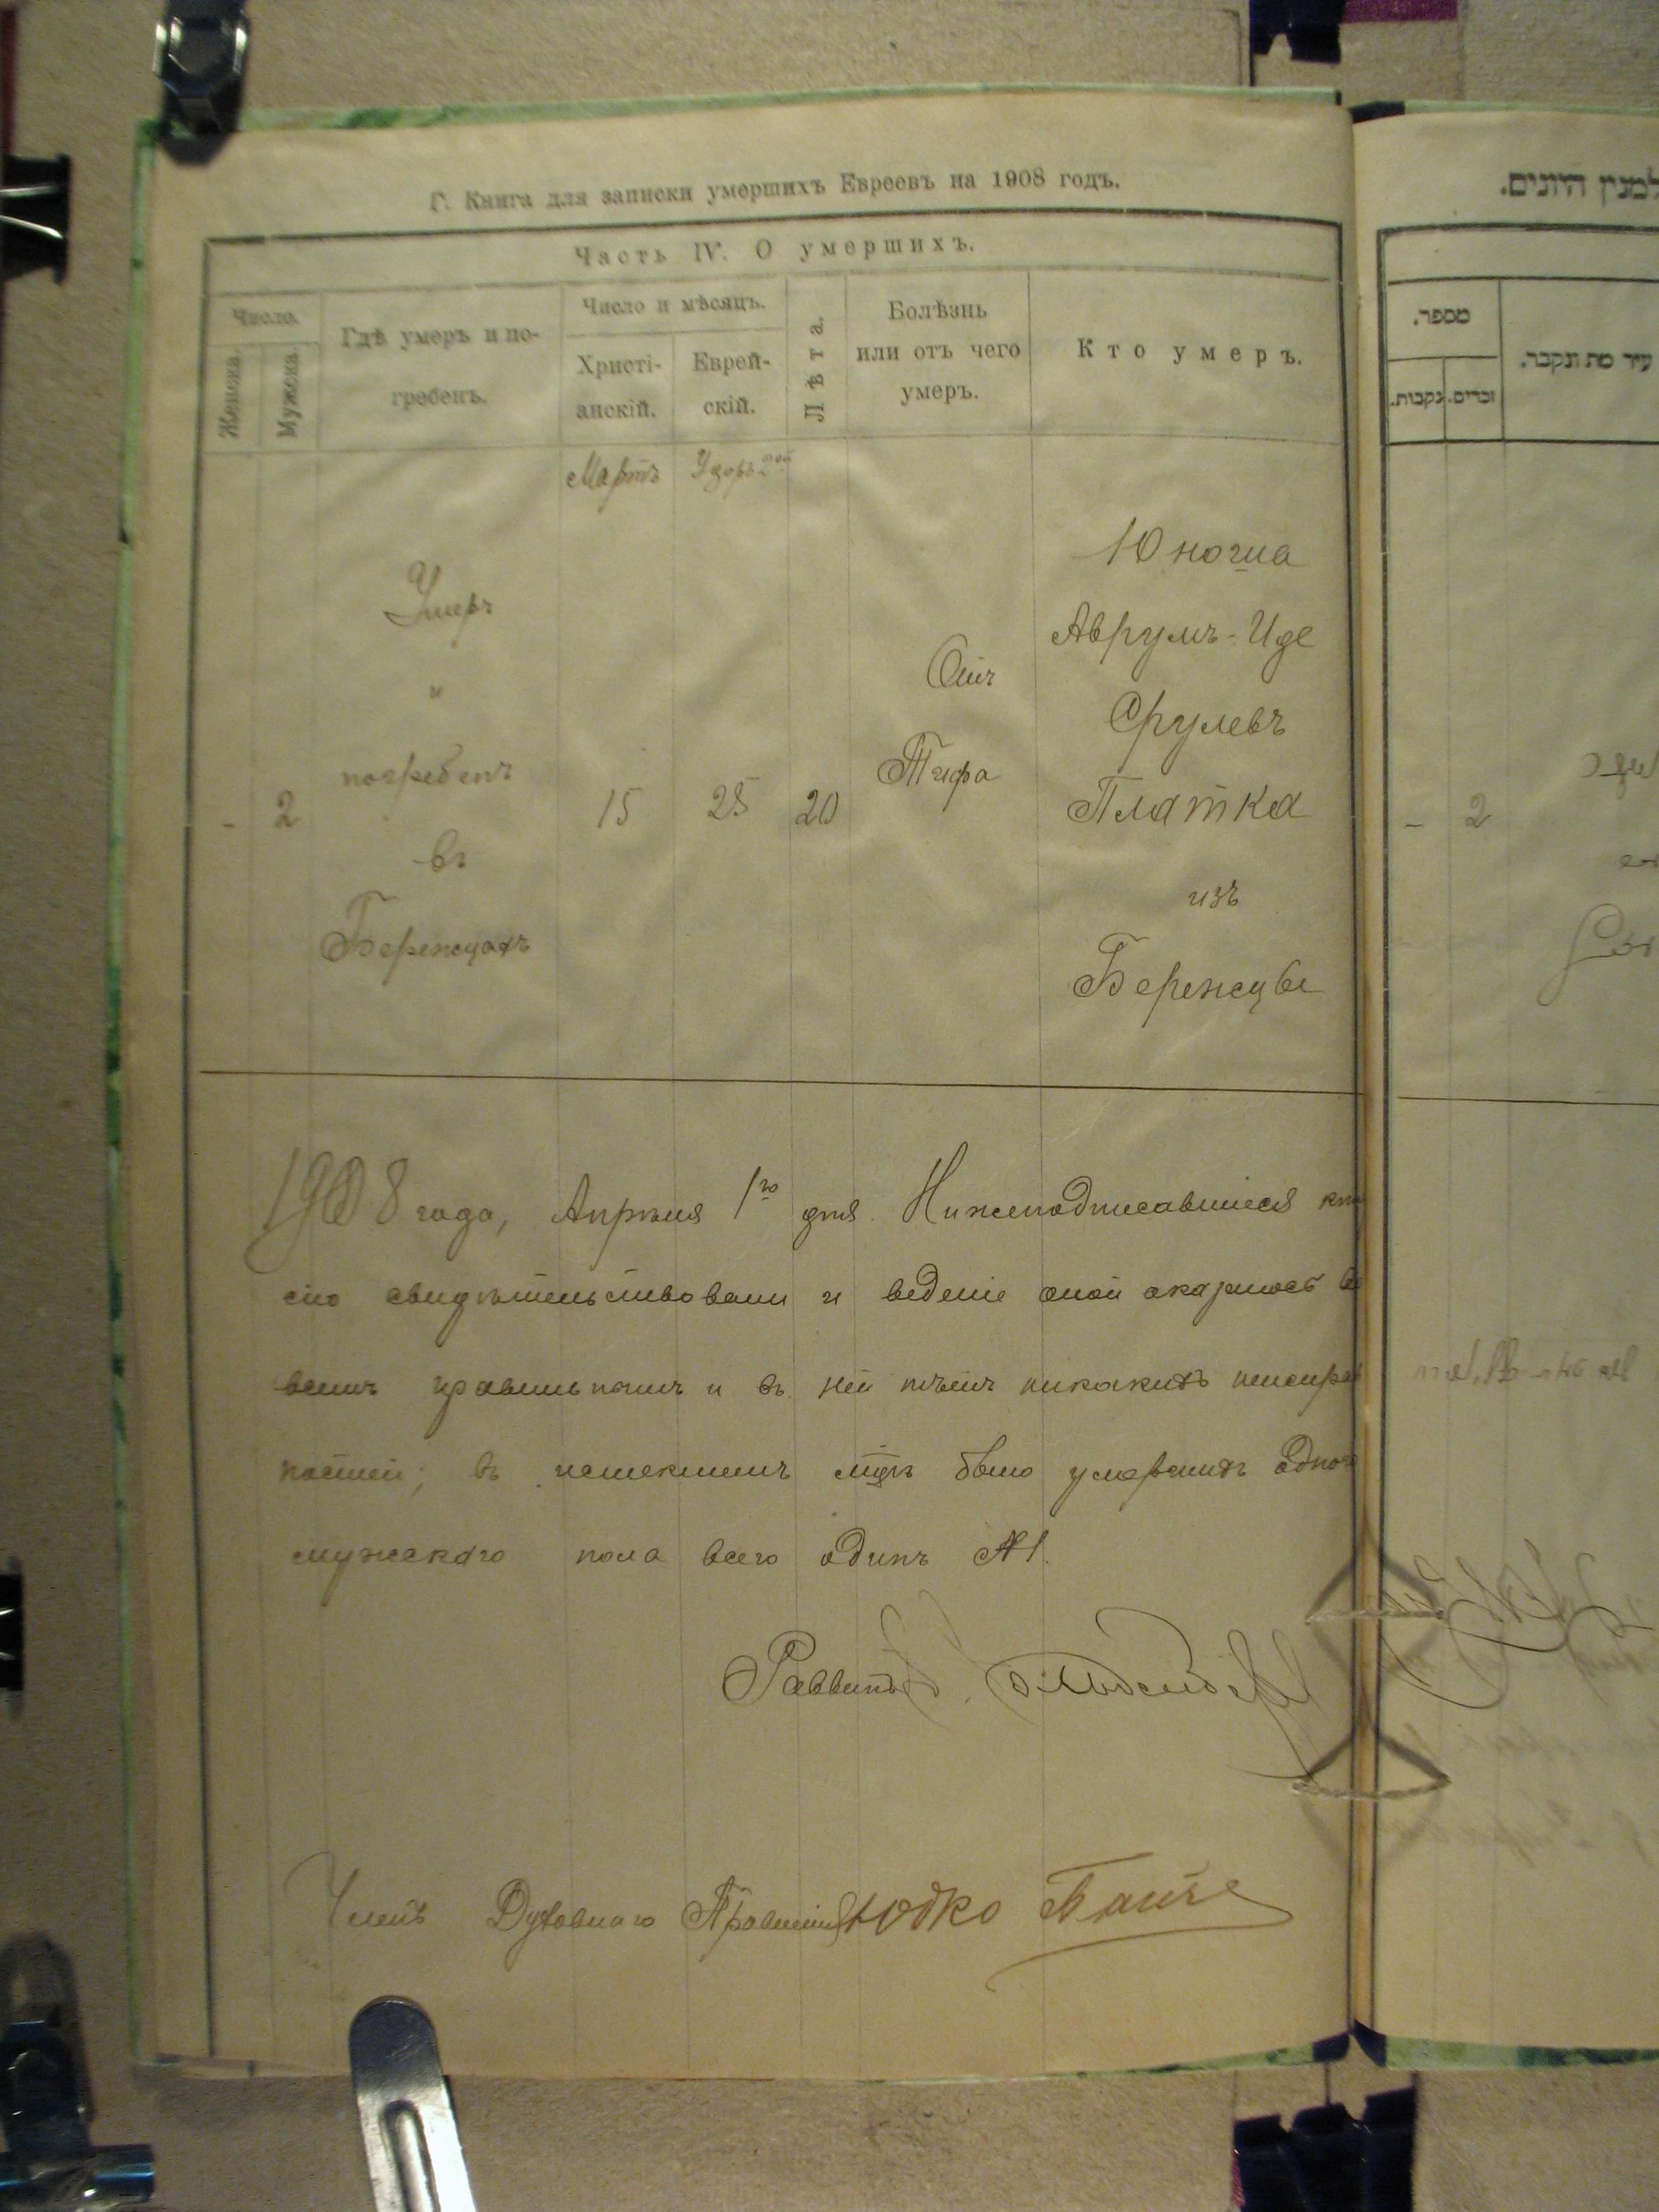 Г. Книга для записки умершихъ Евреевъ на 1908 годъ.
Часть IV. О умершихъ.
Число.
Женска.
Мужска.
Гдѣ умеръ и по-
гребенъ.
Число и мѣсяцъ.
Христі-
анскій.
Еврей-
скій.
Лѣта.
Болѣзнь
или отъ чего
умеръ.
Кто умеръ.
Мартъ
Умеръ
и
погребенъ
въ
Бережцахъ
- 2
15
25
20
Отъ
Тифа
Юноша
Аврумъ-Иде
Срулевъ
Платка
изъ
Бережцы
1908 года, Апрѣля 1го дня. Нижеподписавшіеся
сію свидѣтельствовали и веденіе оной оказалось
всемъ правильнымъ и въ ней нѣтъ никакихъ неисправ
ностей; въ истекшемъ было умершихъ одного
мужскаго пола всего одинъ №1.
Раввинъ
Членъ Духовнаго Правленія Юдко
למנין היונים.
מספר.
נקבות.
זכרים.
עיר מת ונקבר.
- 2